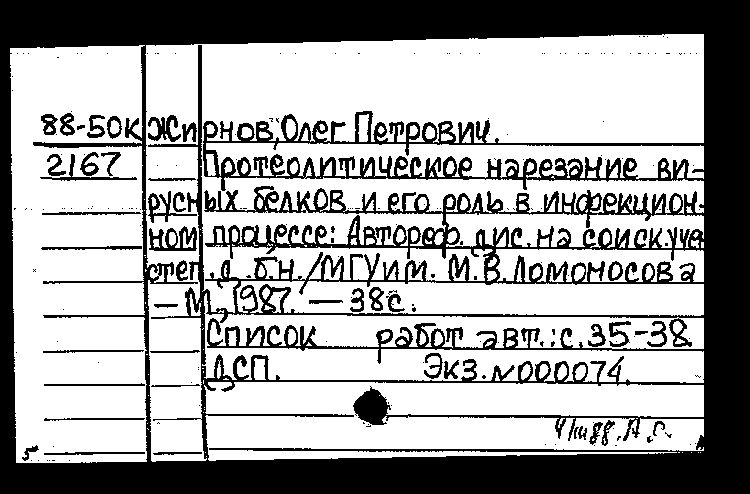 88-50К Жирнов, Олег Петрович.
2167 Протеолитическое нарезание ви-
русных белков и его роль в инфекцион-
ном процессе: Автореф. дис. на соиск. учен
степ. д. б.н./МГУ им. М.В. Ломоносова
— М., 1987. — 38с.
Список работ авт.: с. 35-38.
ДСП. Экз. N000074.
5